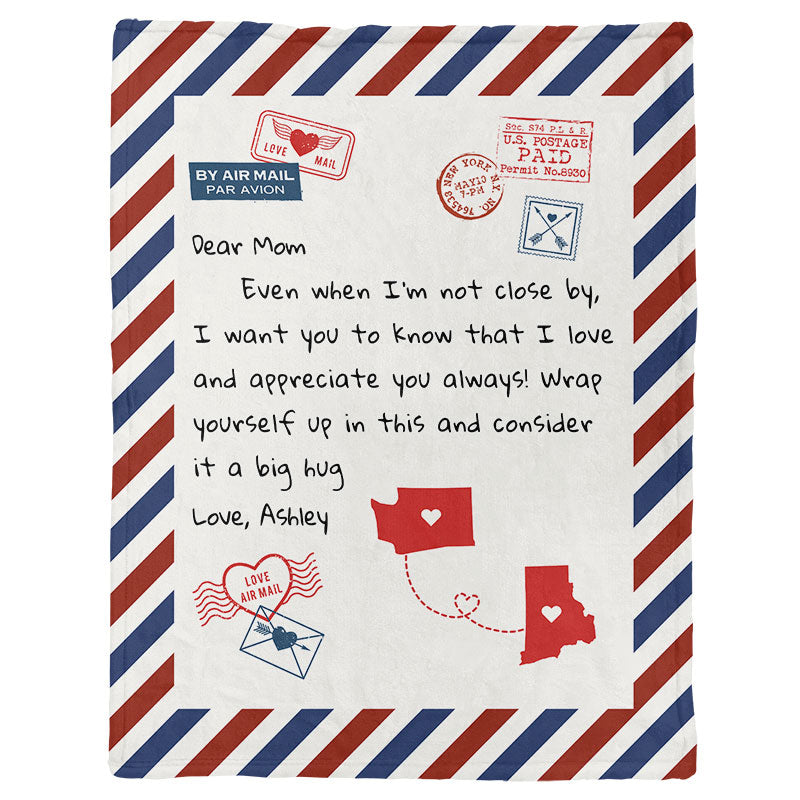 LOVE MAIL
BY AIR MAIL
PAR AVION
NEW YORK N.Y.
MAY10
7-PM
NO. 764538
Sec. S74 P.L & R.
U.S. POSTAGE
PAID
Permit No.8930
Dear Mom
Even when I'm not close by,
I want you to know that I love
and appreciate you always! Wrap
yourself up in this and consider
it a big hug
Love, Ashley
LOVE
AIR MAIL